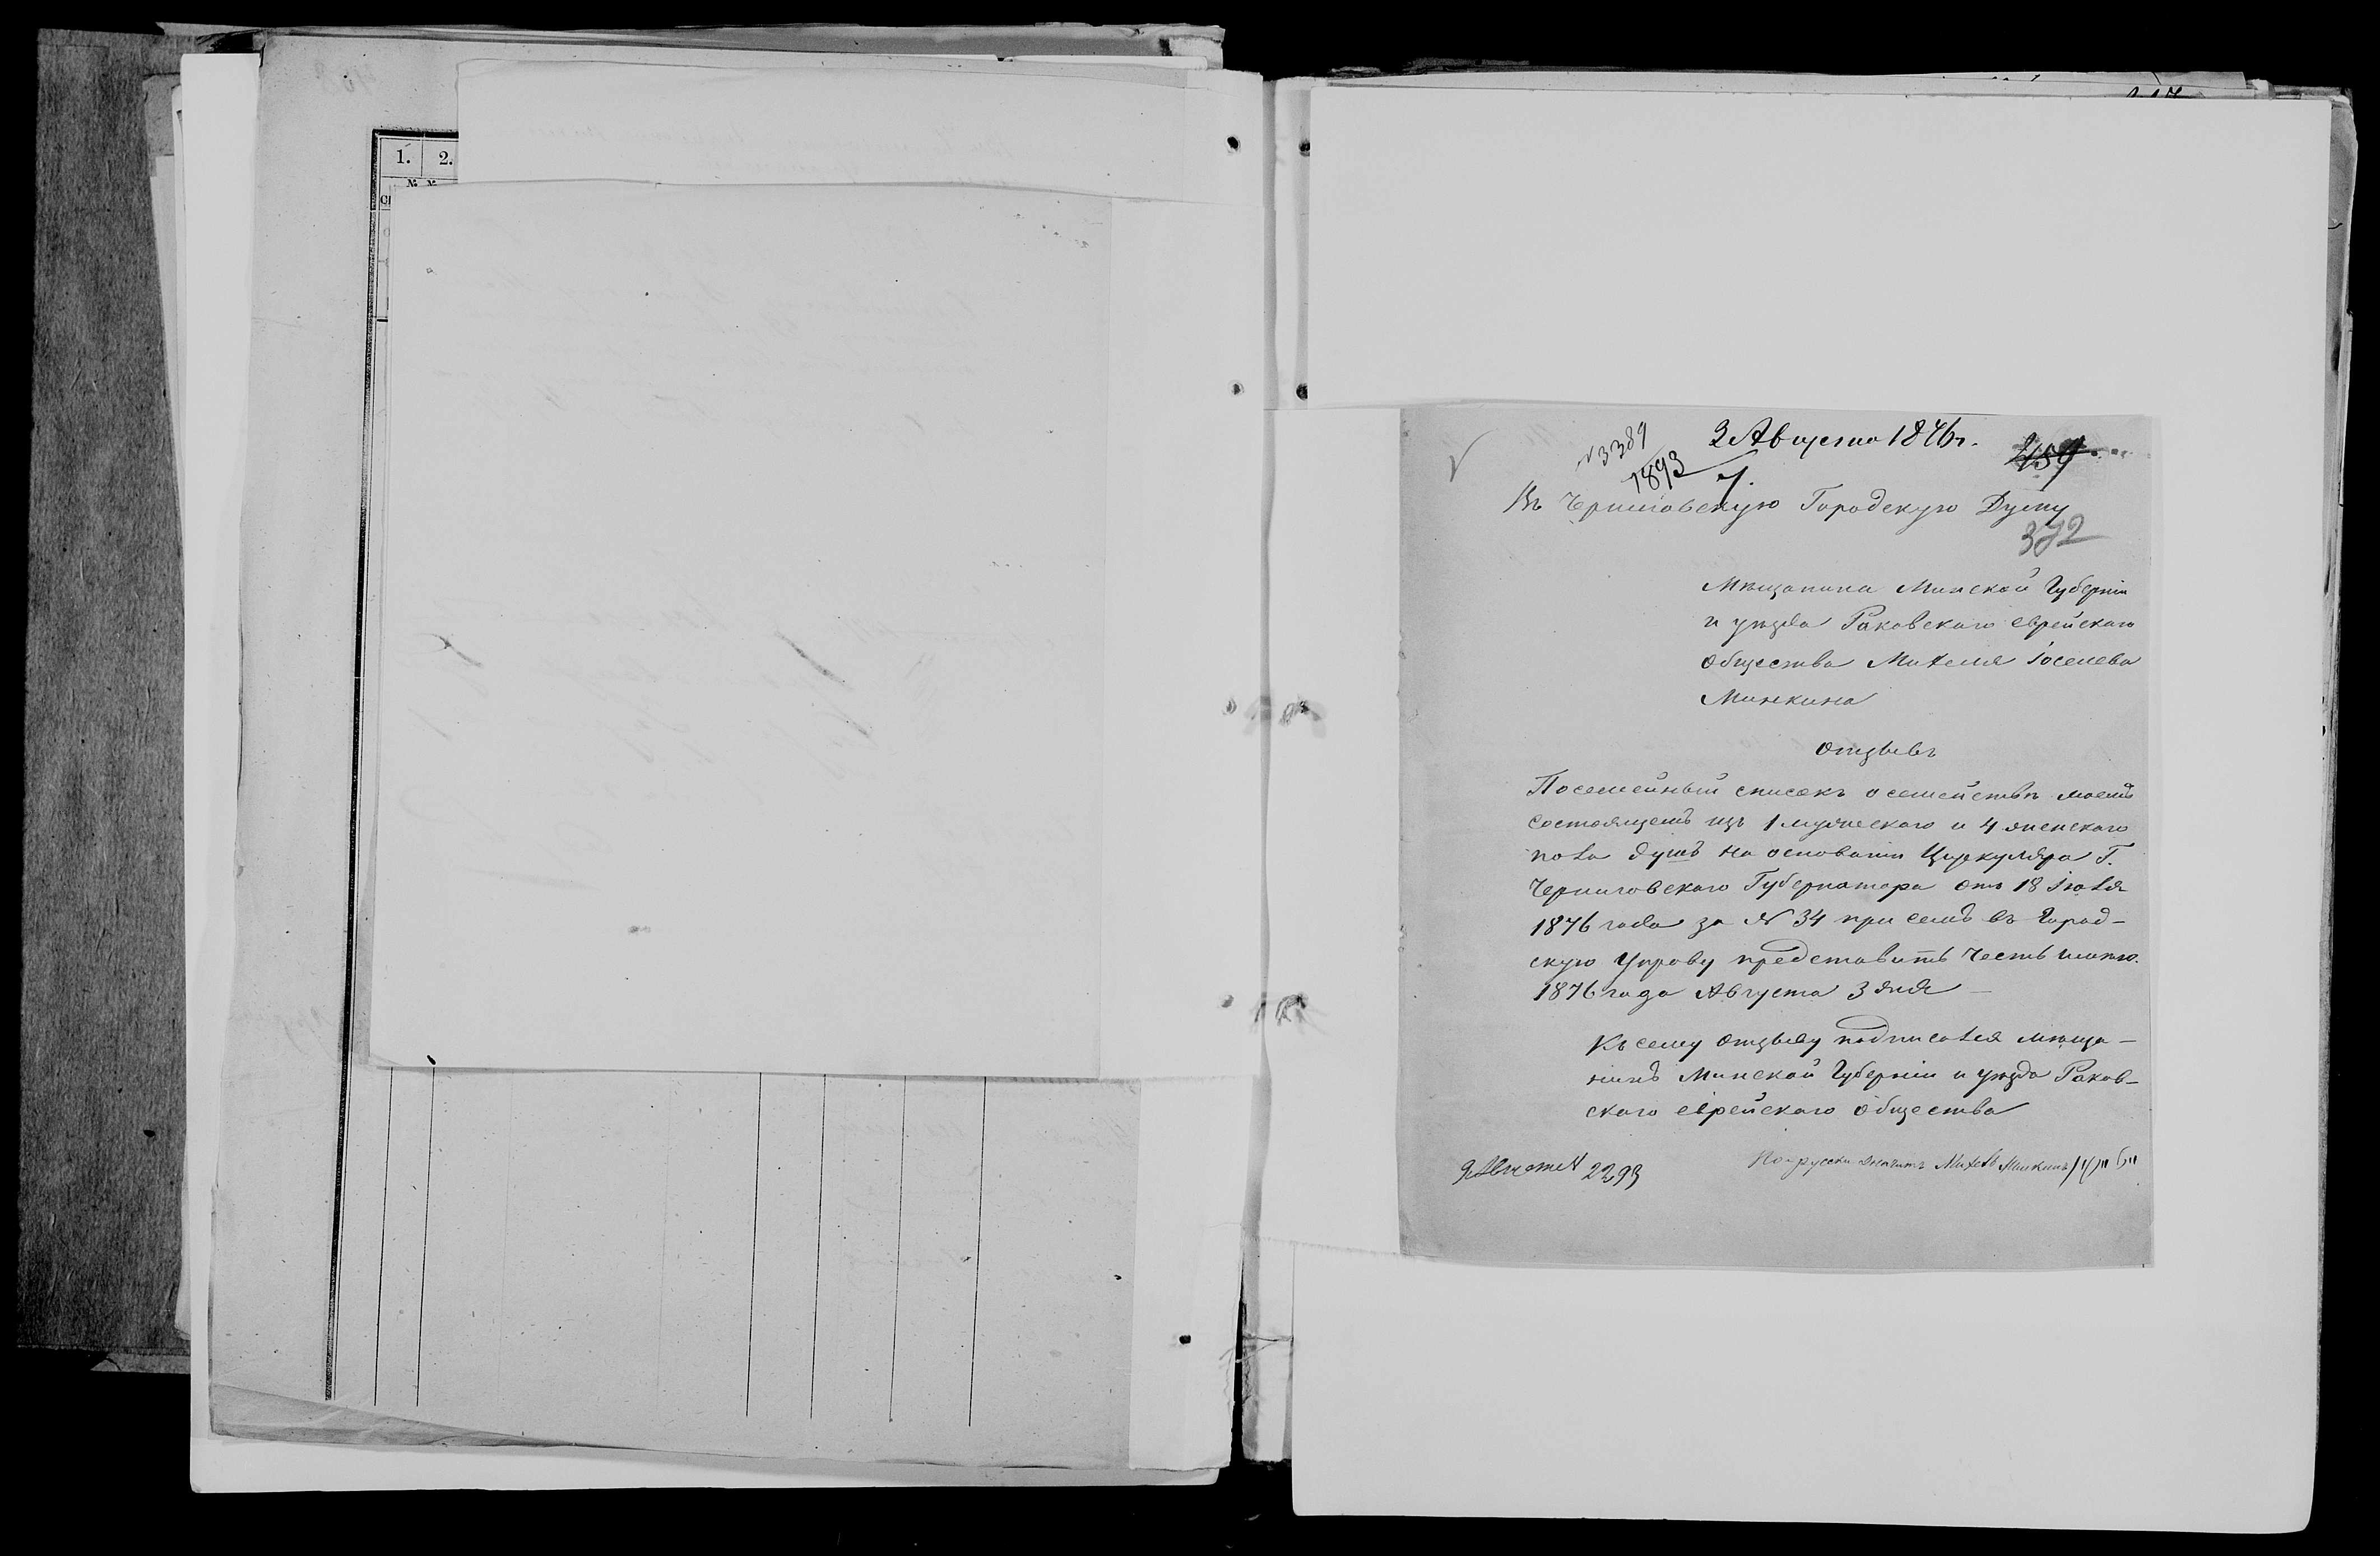 1. 2.
№ №
3 Августа 1876 г.
№ 3389
1893
459
Въ Черниговскую Городскую Думу
372
Мѣщанина Минской Губерніи
и уѣзда Раковскаго еврейскаго
общества Михеля Іоселева
Минкина
Отзывъ
Посемейный списокъ о семействѣ моемъ
состоящемъ изъ 1 мужескаго и 4 женскаго
пола душъ на основаніи Циркуляра Г.
Черниговскаго Губернатора отъ 18 Іюля
1876 года за № 34 при семъ въ Город-
скую Управу представить честь имѣю.
1876 года Августа 3 дня
Къ сему отзыву подписался мѣща-
нинъ Минской Губерніи и уѣзда Раков-
скаго еврейскаго общества
По русски значитъ Михель Минкинъ
2293